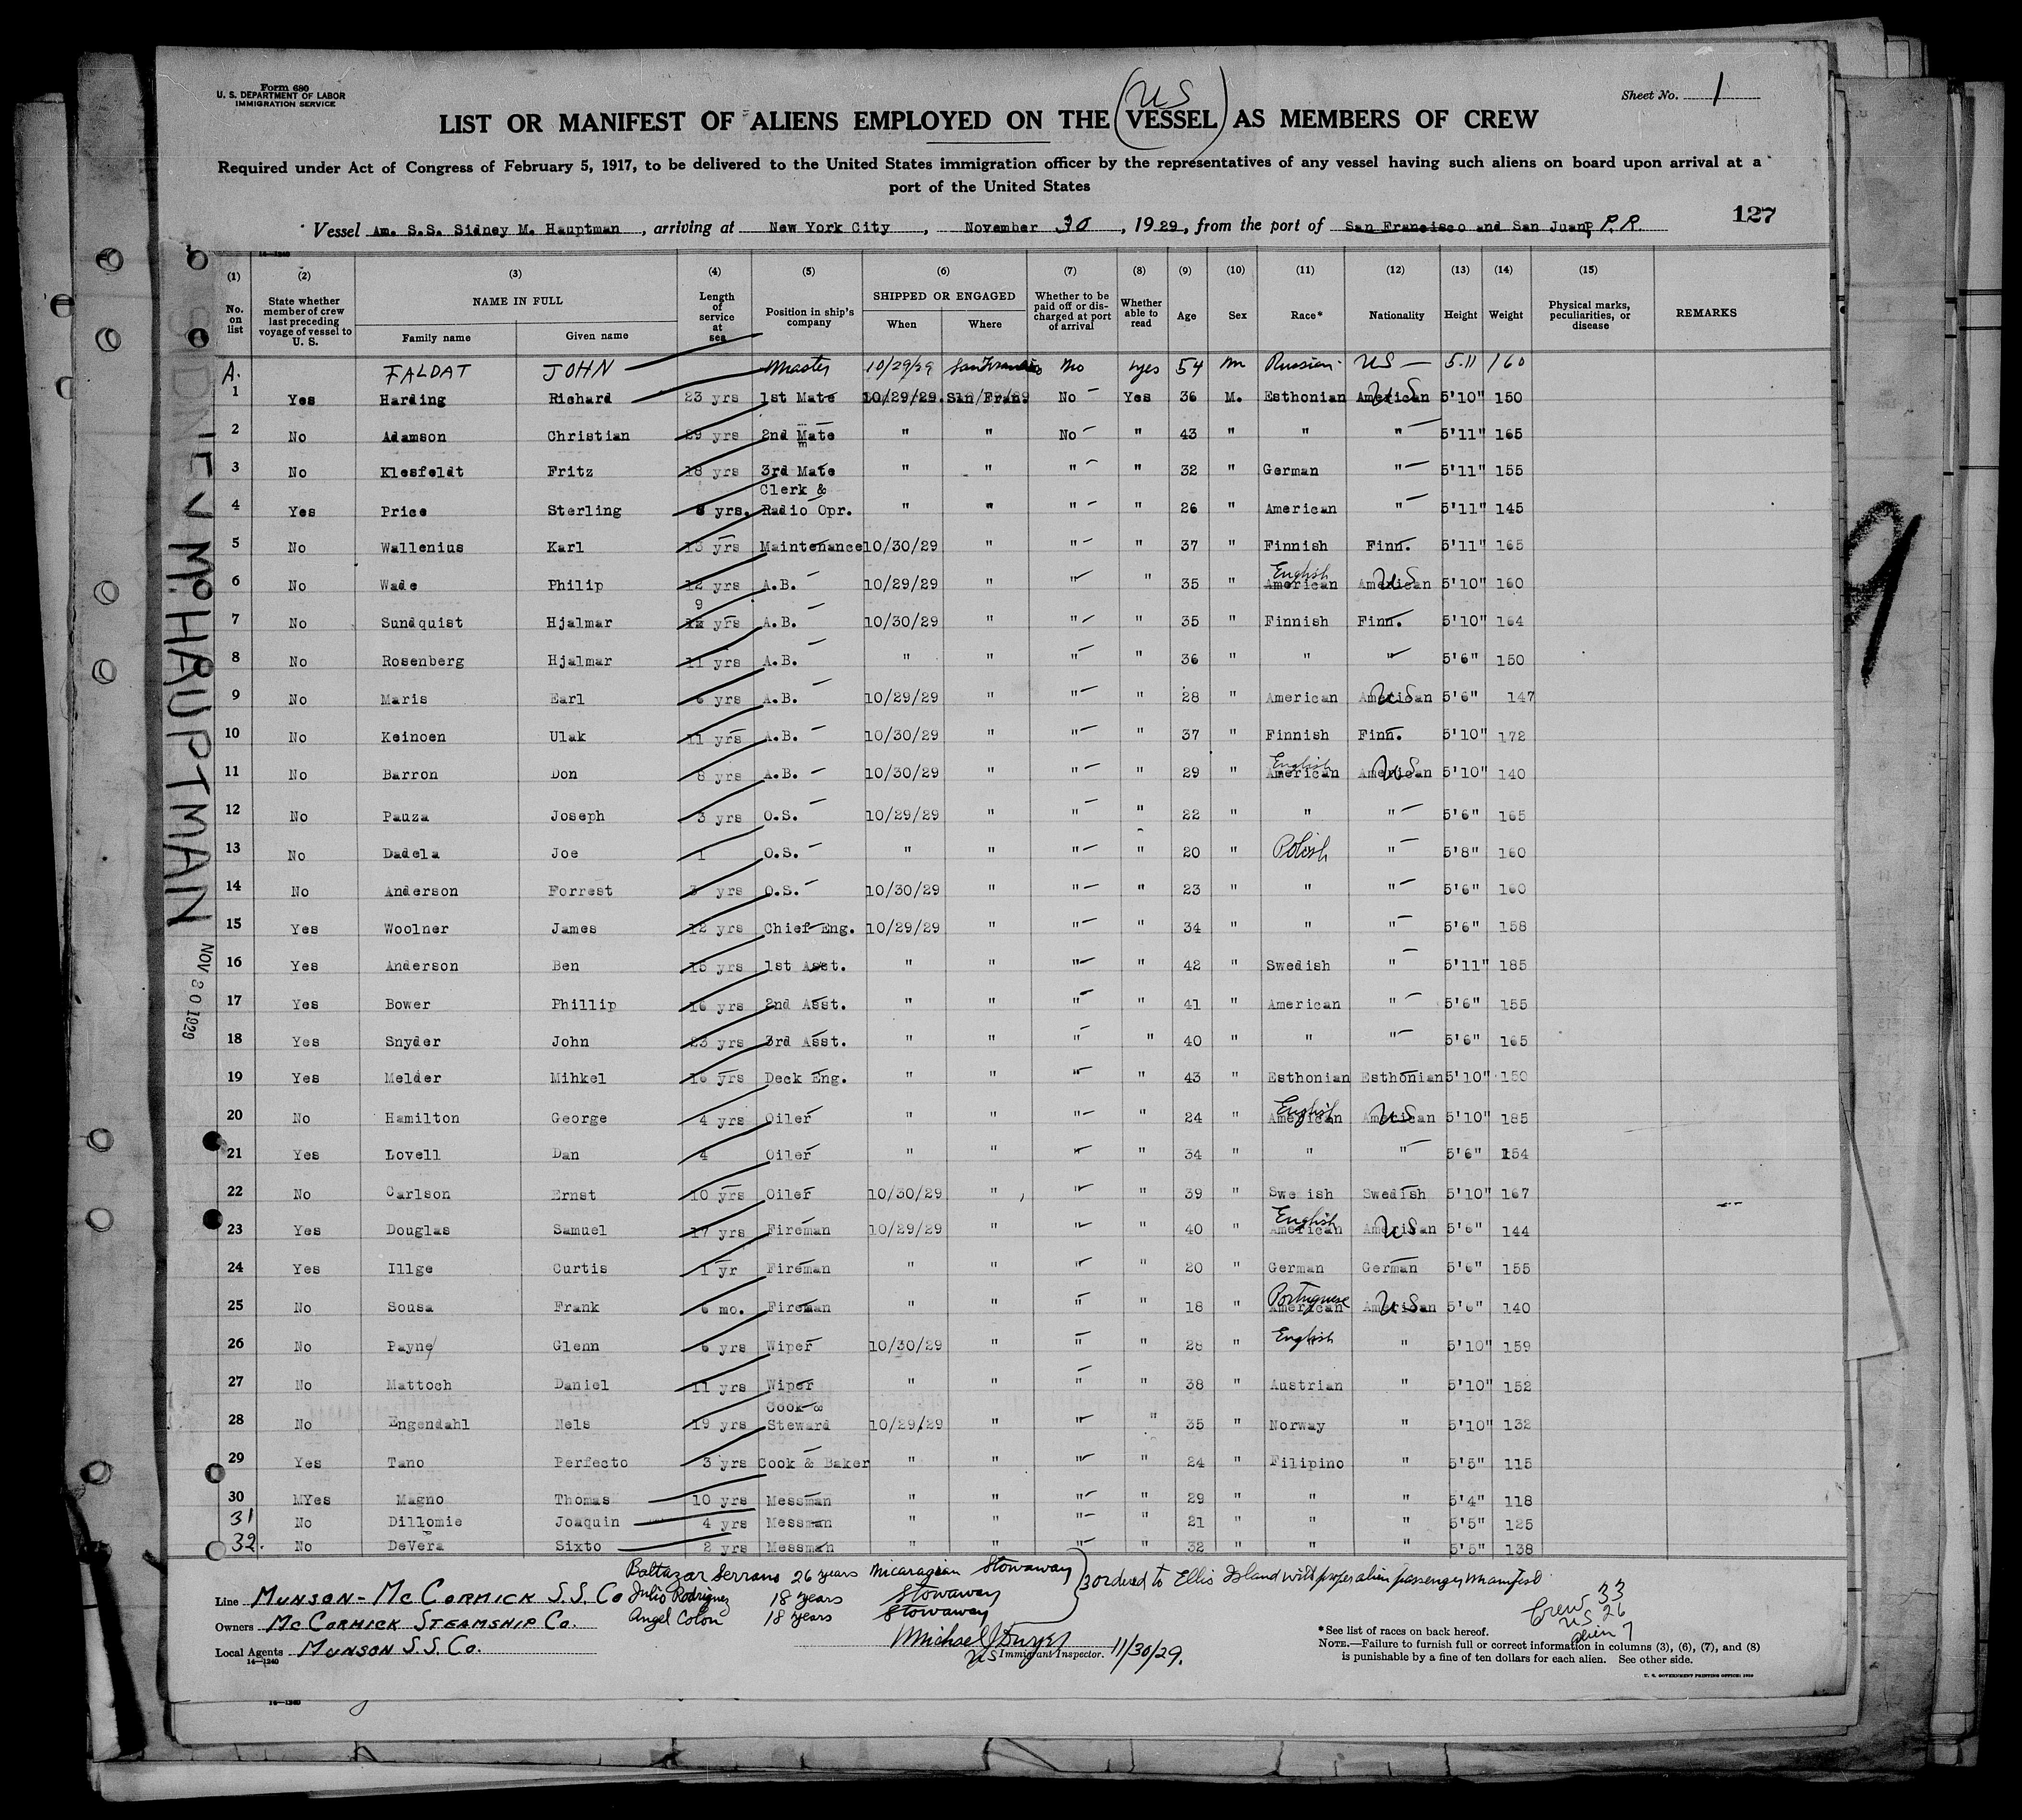 Form 680
U. S. DEPARTMENT OF LABOR
IMMIGRATION SERVICE
Sheet No. 1
US
LIST OR MANIFEST OF ALIENS EMPLOYED ON THE (VESSEL) AS MEMBERS OF CREW
Required under Act of Congress of February 5, 1917, to be delivered to the United States immigration officer by the representatives of any vessel having such aliens on board upon arrival at a
port of the United States
127
Vessel Am. S.S. Sidney M. Hauptman, arriving at New York City, November 30, 1929, from the port of San Francisco and San Juan, P.R.
14—1240
(1) No. on list
(2) State whether member of crew last preceding voyage of vessel to U. S.
(3) NAME IN FULL Family name Given name
(4) Length of service at sea
(5) Position in ship's company
(6) SHIPPED OR ENGAGED When Where
(7) Whether to be paid off or discharged at port of arrival
(8) Whether able to read
(9) Age
(10) Sex
(11) Race*
(12) Nationality
(13) Height
(14) Weight
(15) Physical marks, peculiarities, or disease
REMARKS
A. FALDAT JOHN Master 10/29/29 San Francisco No Yes 54 M Russian US — 5.11 160
1 Yes Harding Richard 23 yrs 1st Mate 10/29/29 San Fran. No — Yes 36 M. Esthonian American US 5'10" 150
2 No Adamson Christian 29 yrs 2nd Mate " " No — " 43 " " " — 5'11" 165
3 No Klesfeldt Fritz 18 yrs 3rd Mate " " " — " 32 " German " — 5'11" 155
4 Yes Price Sterling 8 yrs. Clerk & Radio Opr. " " " — " 26 " American " — 5'11" 145
5 No Wallenius Karl 15 yrs Maintenance 10/30/29 " " — " 37 " Finnish Finn. 5'11" 165
6 No Wade Philip 12 yrs A.B. 10/29/29 " " " 35 " American English American US 5'10" 160
7 No Sundquist Hjalmar 9 yrs A.B. 10/30/29 " " — " 35 " Finnish Finn. 5'10" 164
8 No Rosenberg Hjalmar 11 yrs A.B. " " " " 36 " " " 5'6" 150
9 No Maris Earl 6 yrs A.B. 10/29/29 " " — " 28 " American American US 5'6" 147
10 No Keinoen Ulak 11 yrs A.B. 10/30/29 " " — " 37 " Finnish Finn. 5'10" 172
11 No Barron Don 8 yrs A.B. 10/30/29 " " — " 29 " American English American US 5'10" 140
12 No Pauza Joseph 3 yrs O.S. 10/29/29 " " — " 22 " " " — 5'6" 165
13 No Dadela Joe 1 O.S. " " " — " 20 " Polish " — 5'8" 160
14 No Anderson Forrest 3 yrs O.S. 10/30/29 " " — " 23 " " " — 5'6" 160
15 Yes Woolner James 12 yrs Chief Eng. 10/29/29 " " — " 34 " " " — 5'6" 158
16 Yes Anderson Ben 15 yrs 1st Asst. " " " — " 42 " Swedish " — 5'11" 185
17 Yes Bower Phillip 16 yrs 2nd Asst. " " " — " 41 " American " — 5'6" 155
18 Yes Snyder John 23 yrs 3rd Asst. " " " — " 40 " " " — 5'6" 165
19 Yes Melder Mihkel 16 yrs Deck Eng. " " " — " 43 " Esthonian Esthonian 5'10" 150
20 No Hamilton George 4 yrs Oiler " " " — " 24 " American English American US 5'10" 185
21 Yes Lovell Dan 4 Oiler " " " " 34 " " " — 5'6" 154
22 No Carlson Ernst 10 yrs Oiler 10/30/29 " " " 39 " Swe ish Swedish 5'10" 167
23 Yes Douglas Samuel 17 yrs Fireman 10/29/29 " " " 40 " American English American US 5'6" 144
24 Yes Illge Curtis 1 yr Fireman " " " " 20 " German German 5'6" 155
25 No Sousa Frank 6 mo. Fireman " " " " 18 " American Portuguese American US 5'6" 140
26 No Payne Glenn 6 yrs Wiper 10/30/29 " " " 28 " English " 5'10" 159
27 No Mattoch Daniel 11 yrs Wiper " " " " 38 " Austrian " 5'10" 152
28 No Engendahl Nels 19 yrs Cook & Steward 10/29/29 " " " 35 " Norway " 5'10" 132
29 Yes Tano Perfecto 3 yrs Cook & Baker " " " " 24 " Filipino " 5'5" 115
30 MYes Magno Thomas 10 yrs Messman " " " " 29 " " " 5'4" 118
31 No Dillomie Joaquin 4 yrs Messman " " " — " 21 " " " 5'5" 125
32. No DeVera Sixto 2 yrs Messman " " " " 32 " " " 5'5" 138
Baltazar Serrano 26 years Nicaragian Stowaway
Julio Rodriguez 18 years Stowaway
Angel Colon 18 years Stowaway
3 ordered to Ellis Island with proper alien passenger manifest
Line MUNSON-McCORMICK S.S. Co
Owners McCORMICK STEAMSHIP Co.
Local Agents MUNSON S.S.Co.
14—1240
Michael J Dwyer 11/30/29.
US Immigrant Inspector.
Crew 33
US 26
alien 7
*See list of races on back hereof.
NOTE.—Failure to furnish full or correct information in columns (3), (6), (7), and (8)
is punishable by a fine of ten dollars for each alien. See other side.
U. S. GOVERNMENT PRINTING OFFICE:
SIDNEY M. HAUPTMAN
NOV 30 1929
9
14—1240